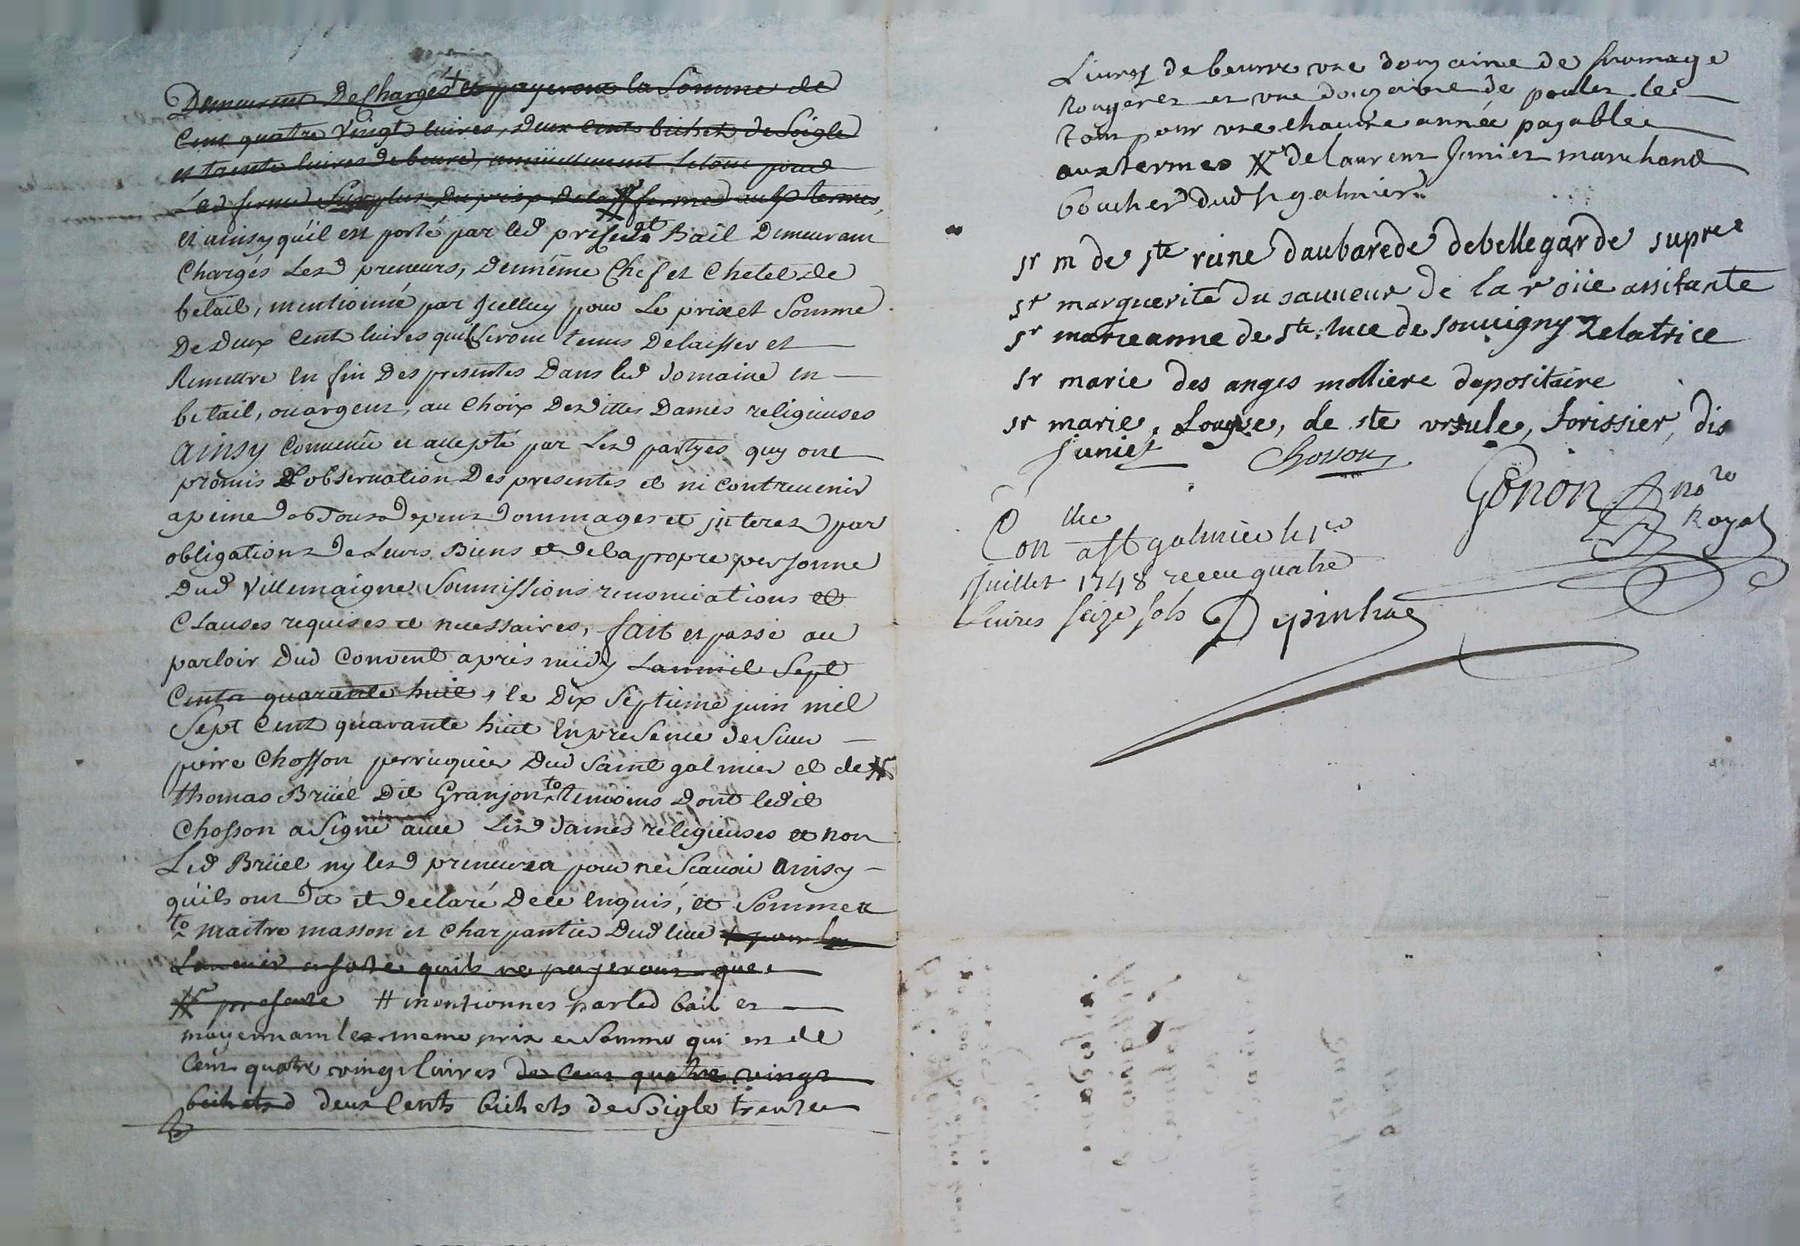 Demeurant Dechargés et payeront la Somme de
Cent quatre vingt livres, deux cents bichet de Soigle
et trente livres de beure, annüellement le tout pour
Lad ferme Surplus du prix de la ferme aux termes,
et ainsy qu'il est porté par led present Bail Demeurant
Chargés Lesd preneurs, Demême Chef et Chetel de
betail, mentionné par Icelluy pour Le prix et Somme
De Deux Cent livres quil Seront tenus Delaisser et
Remettre en fin Des presentes Dans led domaine en
betail, ou argent, au Choix Desdittes Dames religieuses
ainsy Convenu et accepté par Lesd partyes quy ont
promis L'observation Des presentes et ni contrevenir
a peine de Tous depens dommages et interez par
obligations de Leurs Biens et de la propre personne
Dud Villemaigne Soumissions renonciations et
Clauses requises et necessaires, fait et passé au
parloir Dud Convent apres midy Lan mil Sept
Cents quarante huit, le Dix Septieme juin mil
Sept Cent quarante huit En presence de Sieur
pierre Chosson perruquier Dud Saint galmier et de
thomas Brüel Dit Granjon to temoins Dont ledit
Chosson a Signé avec Lesd Dames religieuses et non
Led Brüel ny lesd preneurs pour ne Scavoir ainsy
qu'ils ont Dit et declaré De ce Enquis, et Sommes
to maitre masson et Charpantier Dud lieu
Lavenir en sorte quils ne payeront que
presente # mentionnes par led bail et
moyennant les meme prix et Somme qui est de
Cent quatre vingt livres de Cent quatre vingt
bichets deux Cents bichets de Soigle trente
Livres de beurre une douzaine de fromage
Rougeret et une douzaine de poulet le
Tout pour une chacune année payable
aux termes de laurent Juniet marchand
boucher dud St galmier
sr m de ste reine daubarede de bellegarde supre
sr marguerite du sauveur de la roüe assitante
sr marieanne de ste luce de souvigny Zelatrice
sr marie des anges molliere depositaire
sr marie, Lougve, de ste ursule, forissier, dis
Juniet Chosson
Gonon nore Royal
Con tlle a St galmier le 1er
Juillet 1748 receu quatre
livres seize sols Depinhac